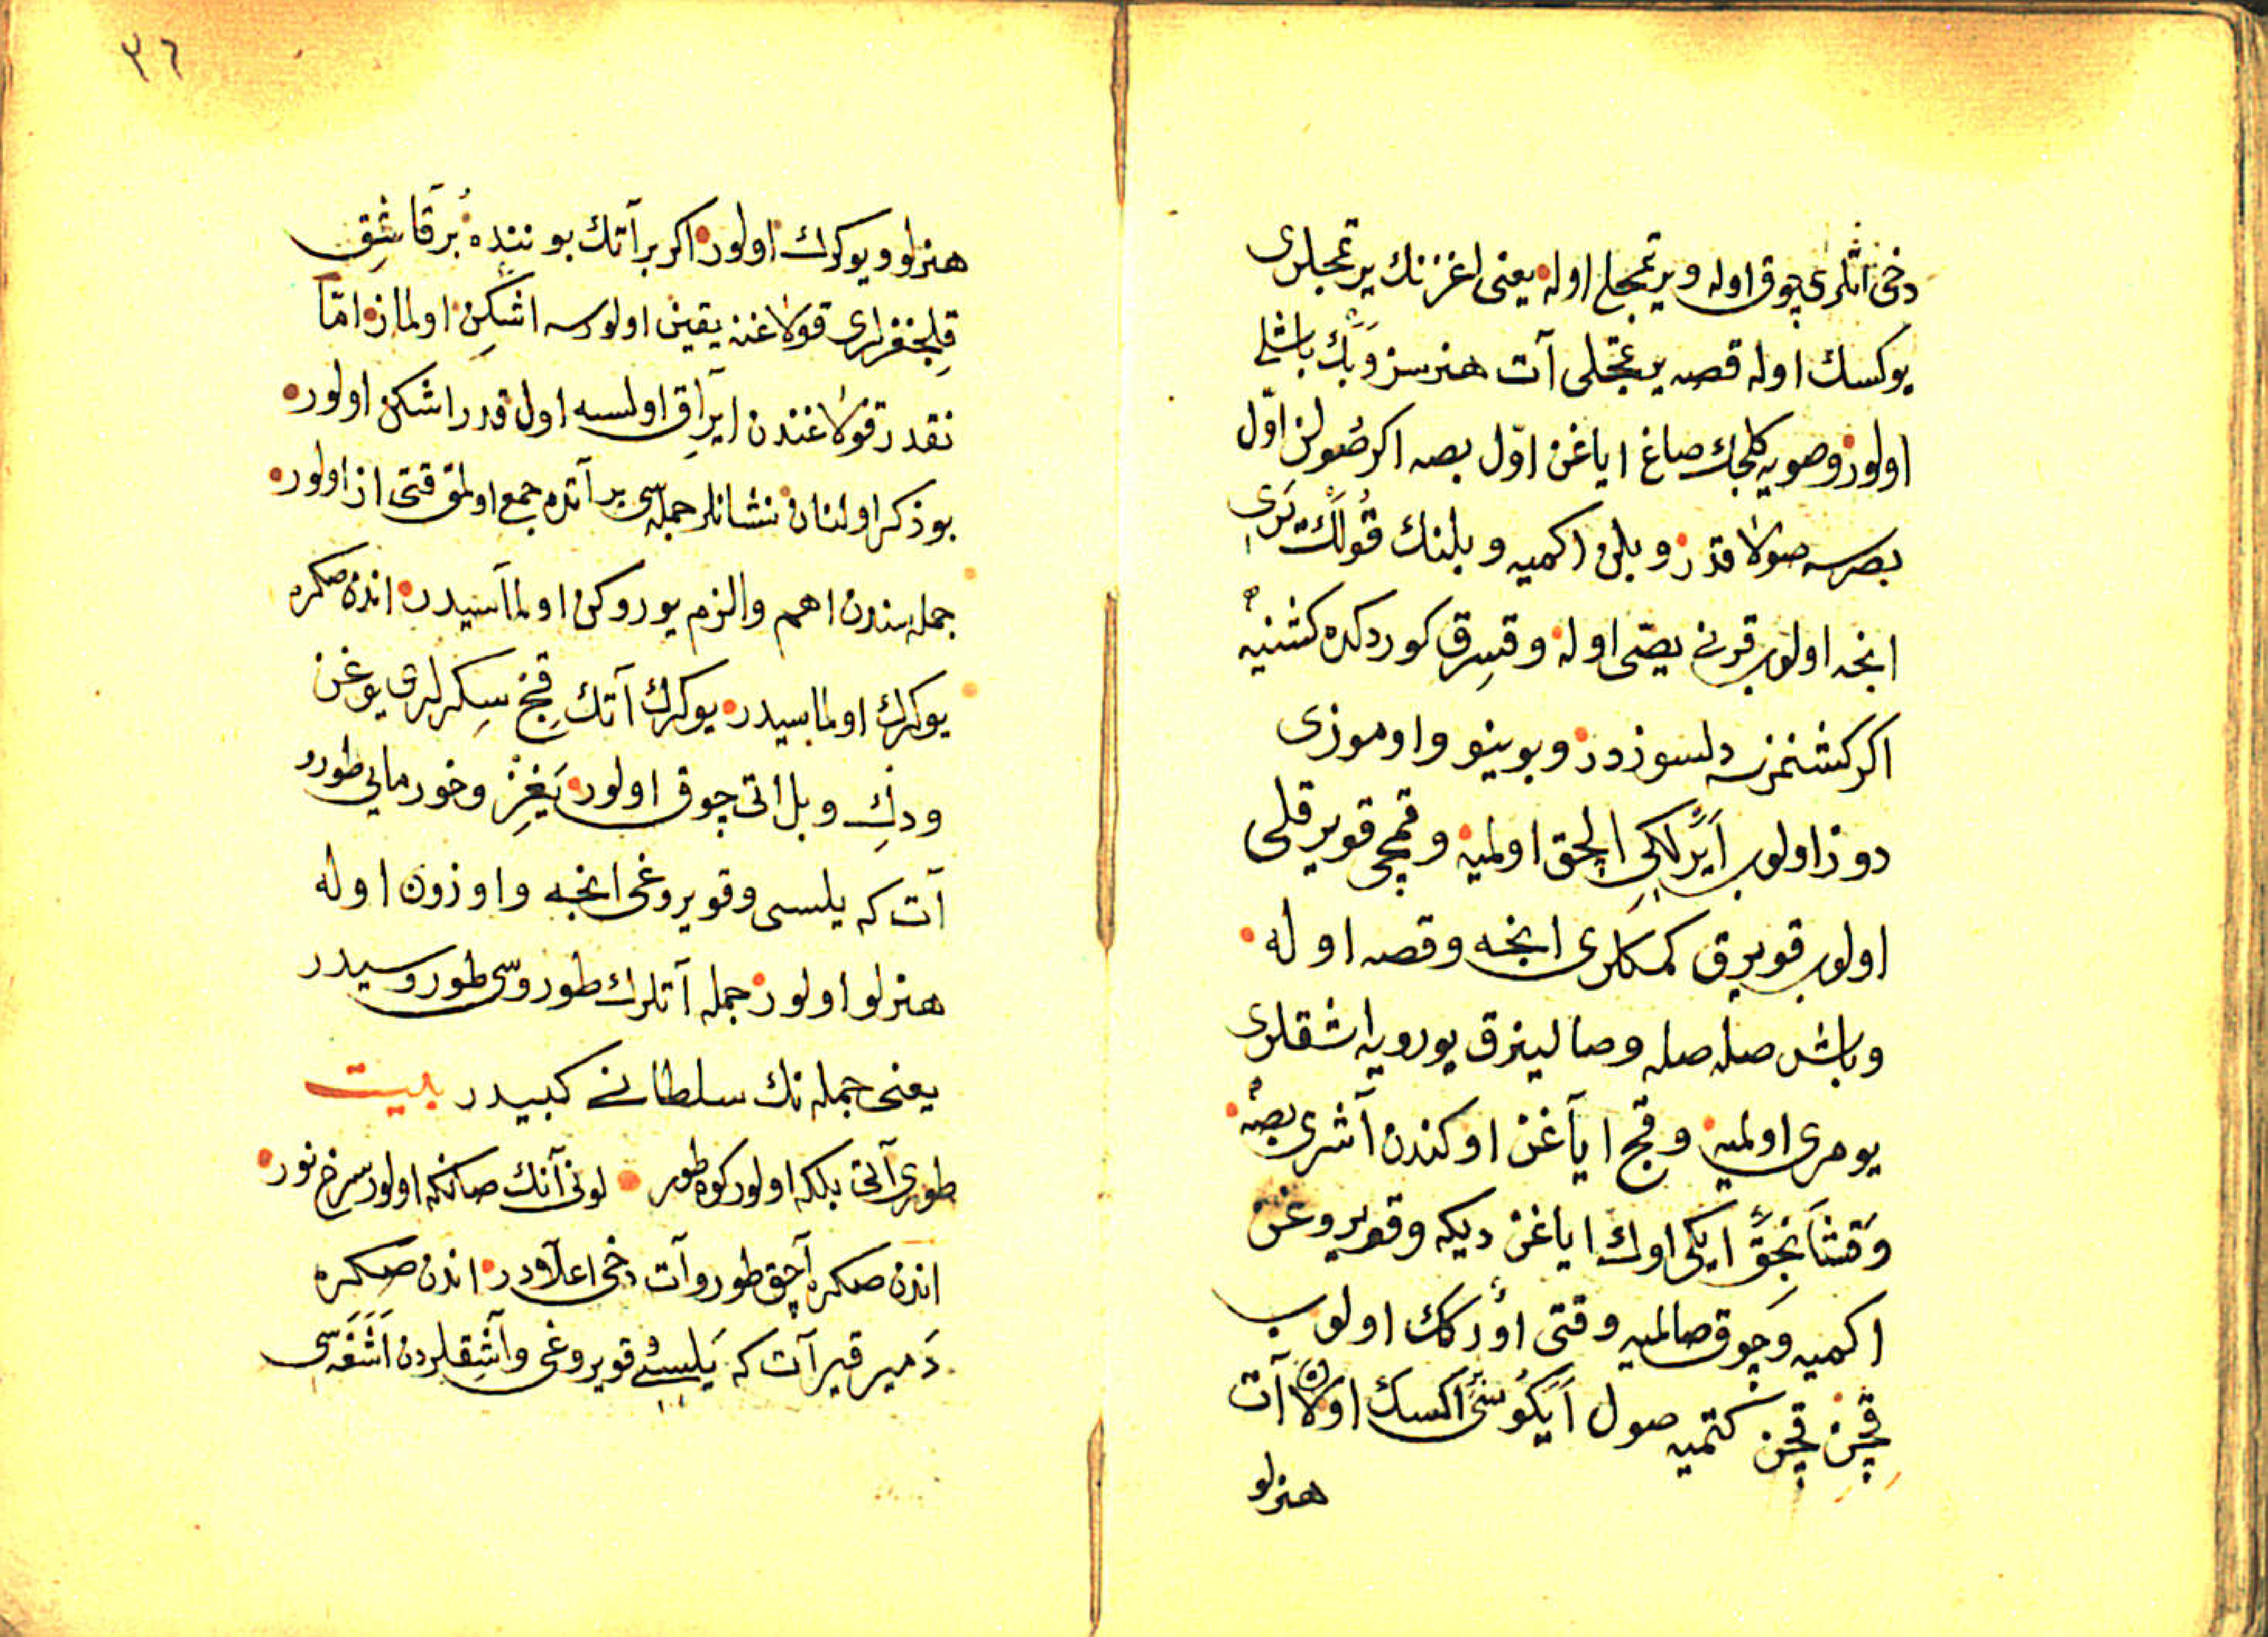 دخی اتلری چوق اوله و یرتمجلی اوله یعنی اغزنك یرتمجلری
یوكسك اوله قصه یرتمجلی آت هنرسز و بك باشلی
اولور و صویه كلجك صاغ ایاغن اوّل بصه اكر صولن اوّل
بصرسه صولاقدر و بلی اكمیه و بلنك قولك یری
اینجه اولوب قرنی یصّی اوله و قسرق كوردكده كشنیه
اكر كشنمزسه دلسوزدر و بوینو و اوموزی
دوز اولوب ایرلكی الچق اولمیه و قمچی قویرقلی
اولوب قویرق كمكلری اینجه و قصه اوله
و باشن صله صله و صالینرق یورویه اشقلری
یومری اولمیه و قچ ایاغن اوكندن آشری بصه
و قشنانجق ایكی اوك ایاغن دیكه و قویروغن
اكمیه و چوق صالمیه وقتی اوررك اولوب
قچن قچن كتمیه صول ایكوسی اكسك اولان آت
هنرلو
٣٦
هنرلو و یوكرك اولور اكر بر آتك بویننده بر قاشق
قلیجغزلری قولاغنه یقین اولورسه اشكن اولماز امّا
نقدر قولاغندن ایراق اولسه اول قدر اشكن اولور
بو ذكر اولنان نشانلر جمله‌سی بر آتده جمع اولمق قتی از اولور
جمله‌سندن اهم و الزم یوروكن اولماسیدر اندن صكره
یوكرك اولماسیدر یوكرك آتك قچ سكرلری یوغن
و دك و بل اتی چوق اولور یغز و خورمایی طورو
آت كه یلسی و قویروغی اینجه و اوزون اوله
هنرلو اولور جمله آتلرك طوروسی طوروسیدر
یعنی جمله‌نك سلطانی كبیدر بیت
طوری آتی بلكه اولور كوه طور لونی آنك صانكه اولور سرخ نور
اندن صكره آچق طورو آت دخی اعلادر اندن صكره
دمیر قیر آت كه یلسی و قویروغی و آشقلردن اشغه‌سی